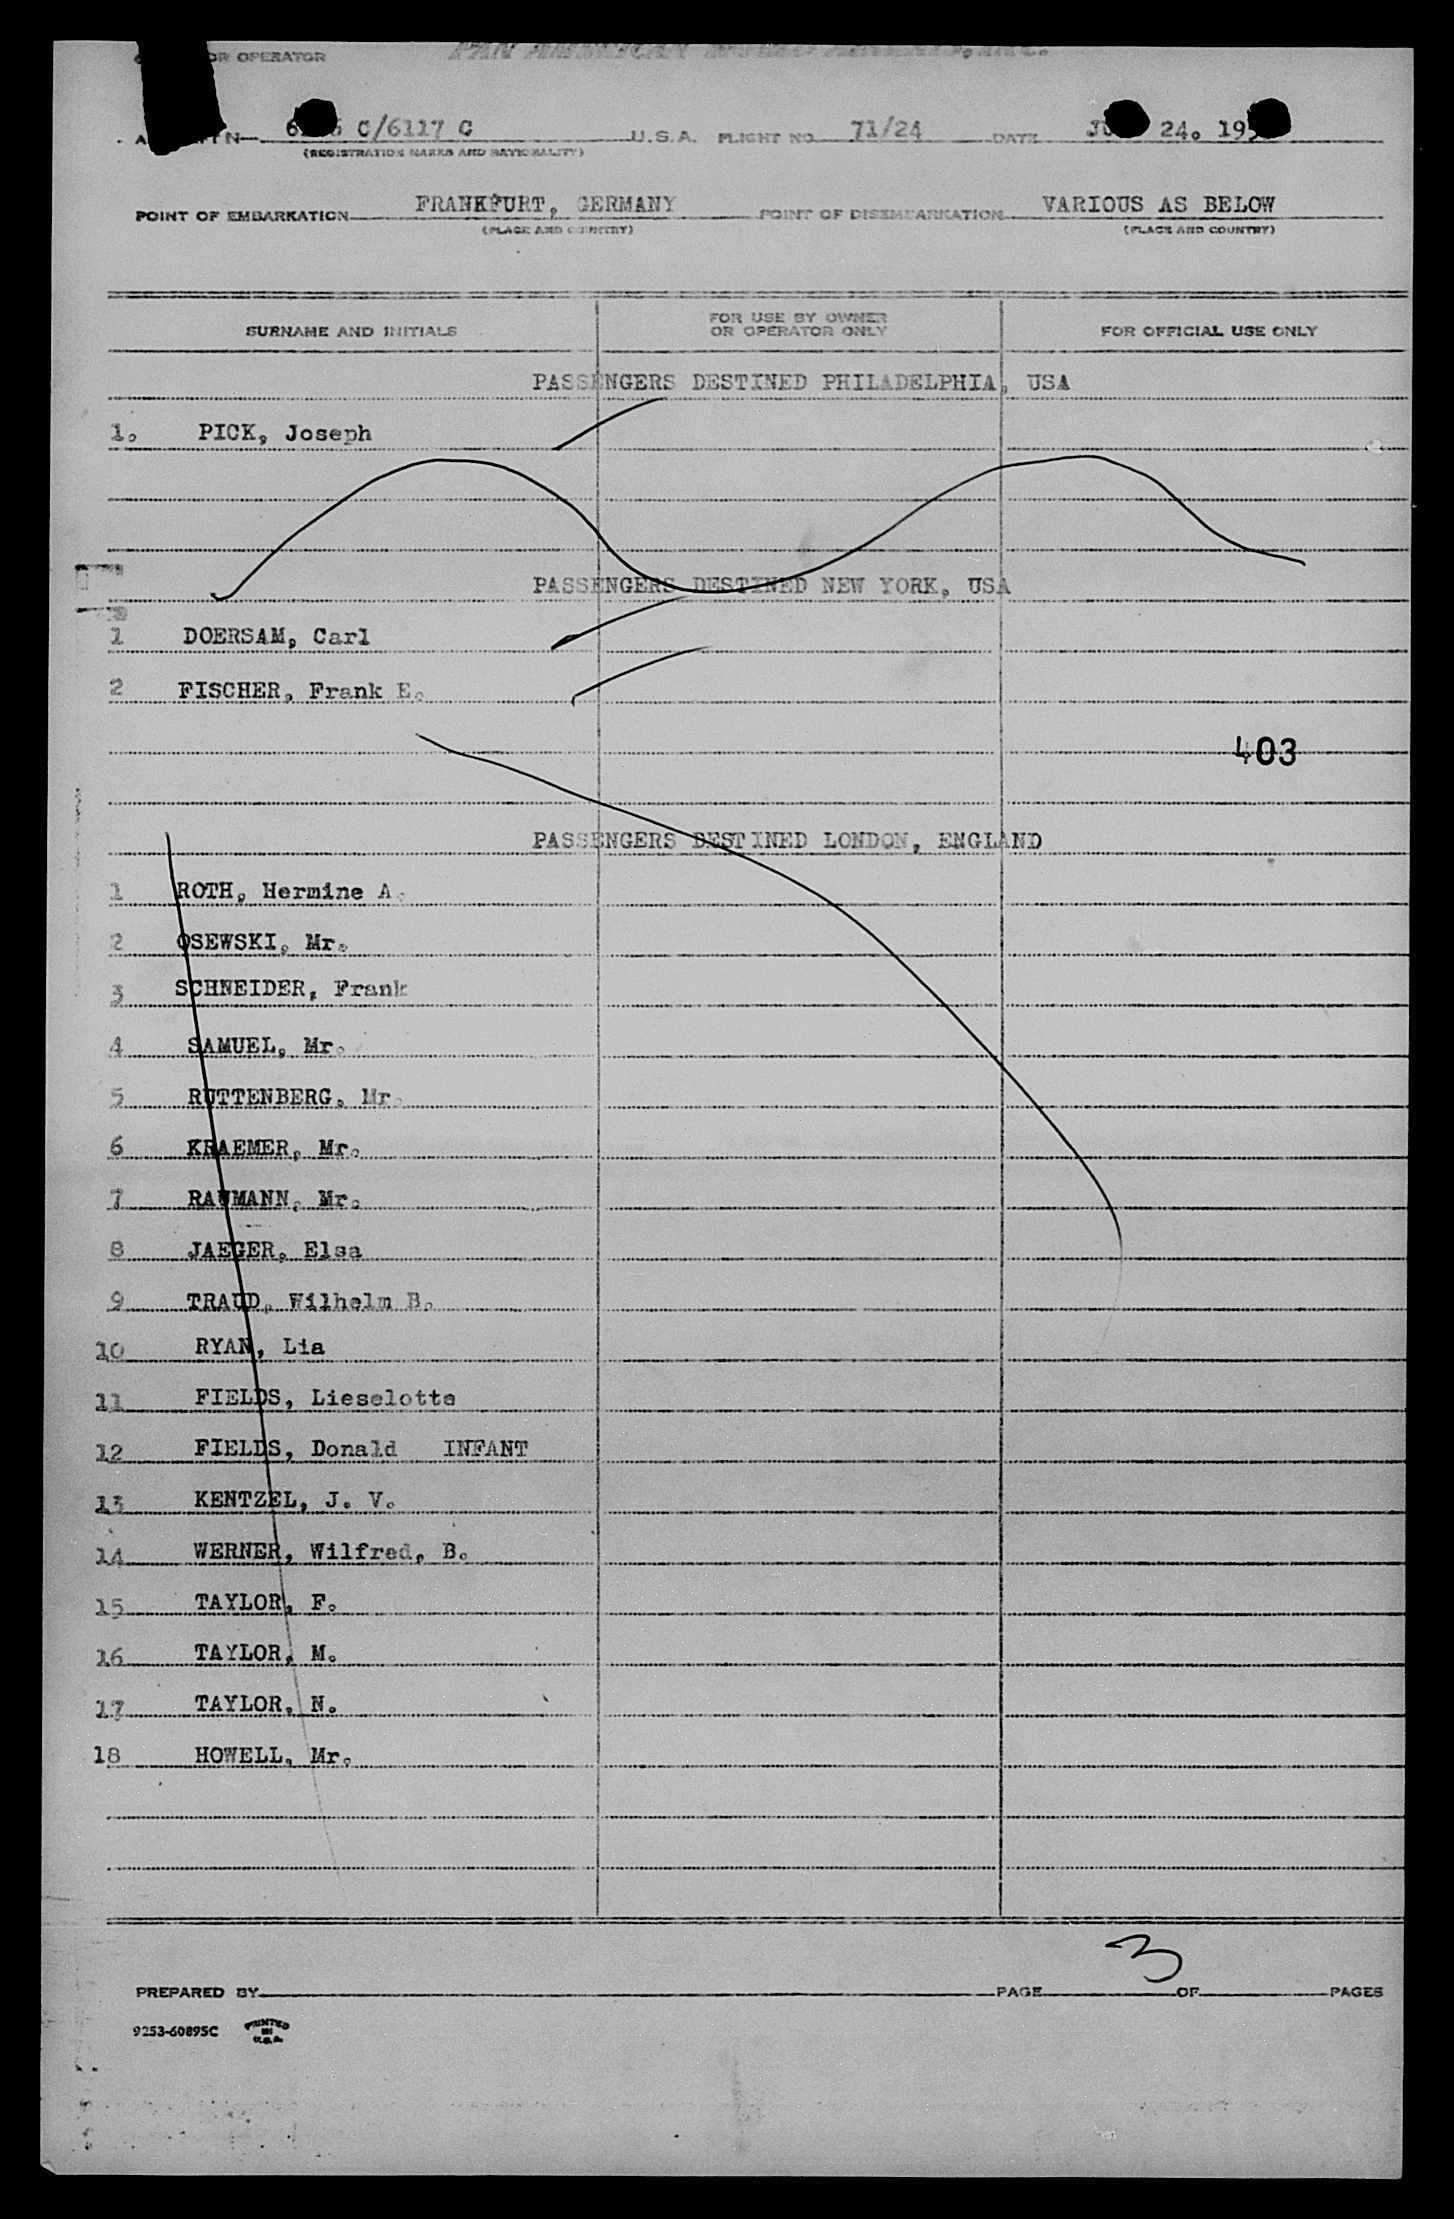 OR OPERATOR PAN AMERICAN WORLD AIRWAYS, INC.
C/6117 C U.S.A. FLIGHT NO. 71/24 DATE 24. 195
(REGISTRATION MARKS AND NATIONALITY)
POINT OF EMBARKATION FRANKFURT, GERMANY POINT OF DISEMBARKATION VARIOUS AS BELOW
(PLACE AND COUNTRY) (PLACE AND COUNTRY)
SURNAME AND INITIALS FOR USE BY OWNER OR OPERATOR ONLY FOR OFFICIAL USE ONLY
PASSENGERS DESTINED PHILADELPHIA, USA
1. PICK, Joseph
PASSENGERS DESTINED NEW YORK, USA
1 DOERSAM, Carl
2 FISCHER, Frank E.
403
PASSENGERS DESTINED LONDON, ENGLAND
1 ROTH, Hermine A.
2 OSEWSKI, Mr.
3 SCHNEIDER, Frank
4 SAMUEL, Mr.
5 RUTTENBERG, Mr.
6 KRAEMER, Mr.
7 RAUMANN, Mr.
8 JAEGER, Elsa
9 TRAUD, Wilhelm B.
10 RYAN, Lia
11 FIELDS, Lieselotte
12 FIELDS, Donald INFANT
13 KENTZEL, J. V.
14 WERNER, Wilfred, B.
15 TAYLOR, F.
16 TAYLOR, M.
17 TAYLOR, N.
18 HOWELL, Mr.
PREPARED BY PAGE 3 OF PAGES
9253-60895C PRINTED IN U.S.A.